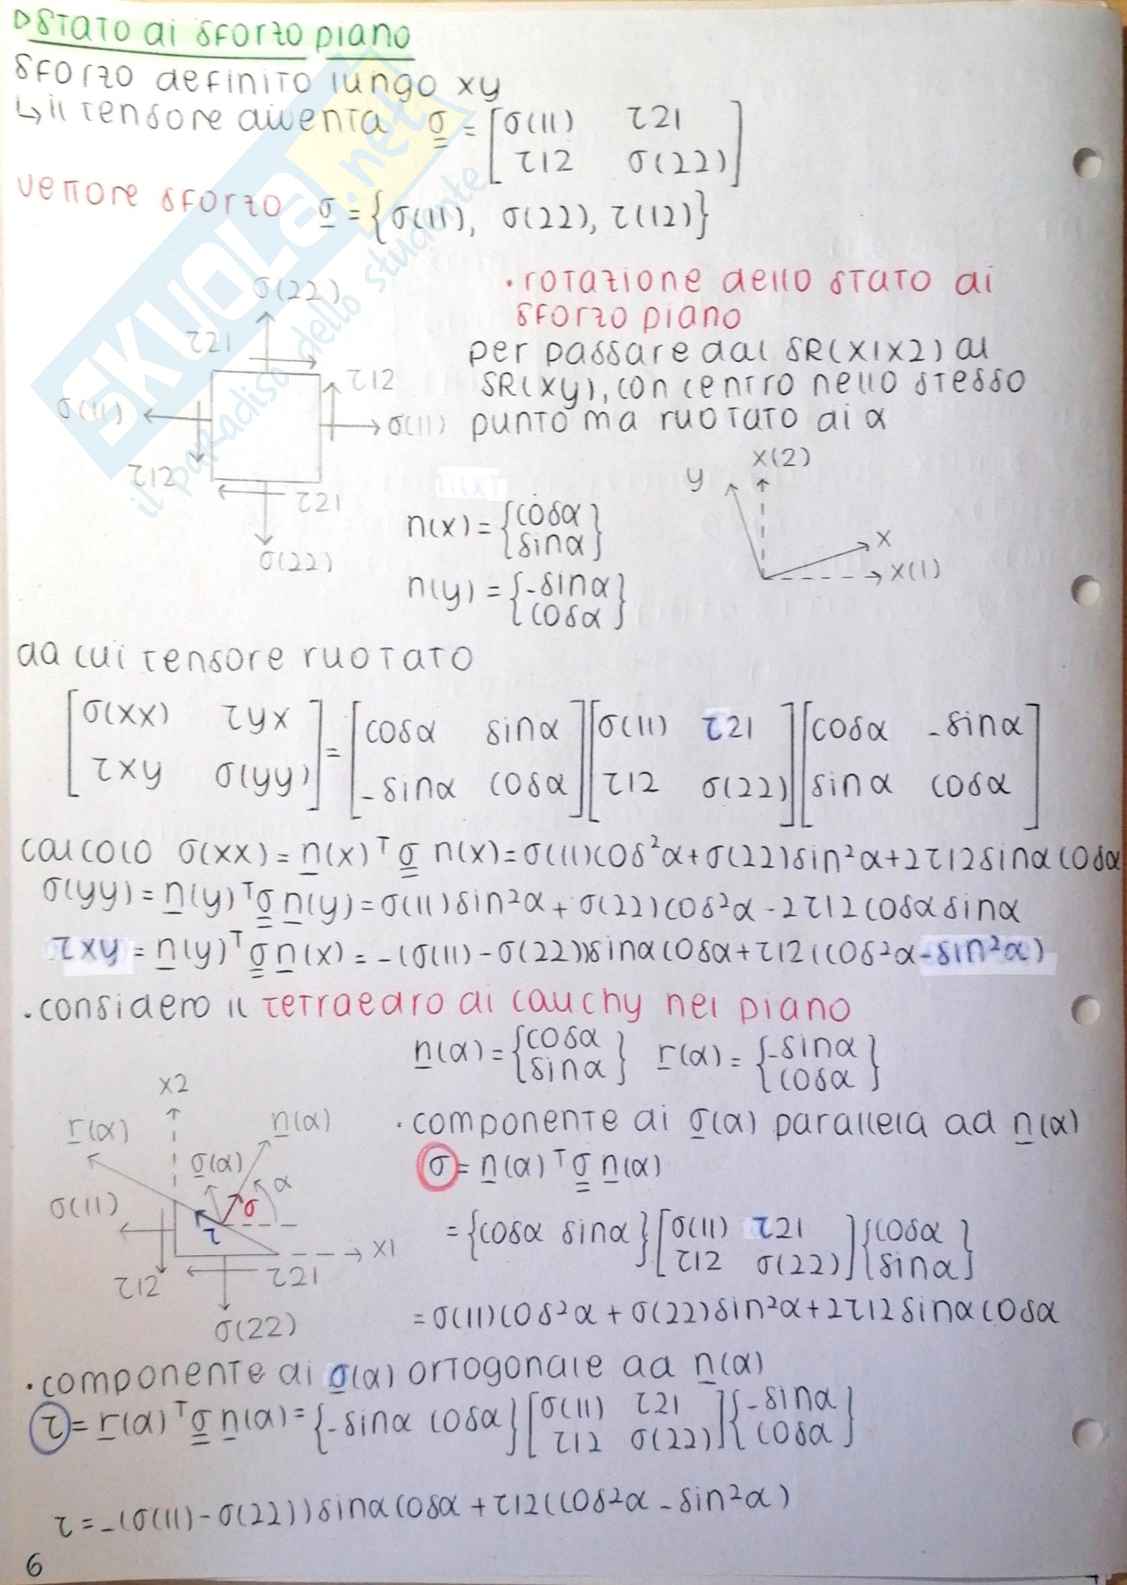 ▷STATO di SFORZO piano
SFORZO definito lungo xy
↳il tensore diventa σ = [σ(11) τ21
τ12 σ(22)]
vettore sforzo σ = {σ(11), σ(22), τ(12)}
SKUOLA.net
il paradiso dello studente
σ(22)
τ21
τ12
σ(11)
σ(11)
τ12
τ21
σ(22)
• rotazione dello stato di
sforzo piano
per passare dal SR(x1x2) al
SR(xy), con centro nello stesso
punto ma ruotato di α
n(x) = {cosα
sinα}
n(y) = {-sinα
cosα}
x(2)
y
x
x(1)
da cui tensore ruotato
[σ(xx) τyx
τxy σ(yy)] = [cosα sinα
-sinα cosα] [σ(11) τ21
τ12 σ(22)] [cosα -sinα
sinα cosα]
calcolo σ(xx) = n(x)ᵀ σ n(x) = σ(11)cos²α + σ(22)sin²α + 2τ12 sinα cosα
σ(yy) = n(y)ᵀ σ n(y) = σ(11)sin²α + σ(22)cos²α - 2τ12 cosα sinα
τxy = n(y)ᵀ σ n(x) = -(σ(11) - σ(22))sinα cosα + τ12(cos²α - sin²α)
• considero il tetraedro di cauchy nel piano
n(α) = {cosα
sinα} r(α) = {-sinα
cosα}
x2
r(α)
n(α)
σ(α)
α
σ
τ
σ(11)
x1
τ12
τ21
σ(22)
• componente di σ(α) parallela ad n(α)
σ = n(α)ᵀ σ n(α)
= {cosα sinα} [σ(11) τ21
τ12 σ(22)] {cosα
sinα}
= σ(11)cos²α + σ(22)sin²α + 2τ12 sinα cosα
• componente di σ(α) ortogonale ad n(α)
τ = r(α)ᵀ σ n(α) = {-sinα cosα} [σ(11) τ21
τ12 σ(22)] {-sinα
cosα}
τ = -(σ(11) - σ(22))sinα cosα + τ12(cos²α - sin²α)
6